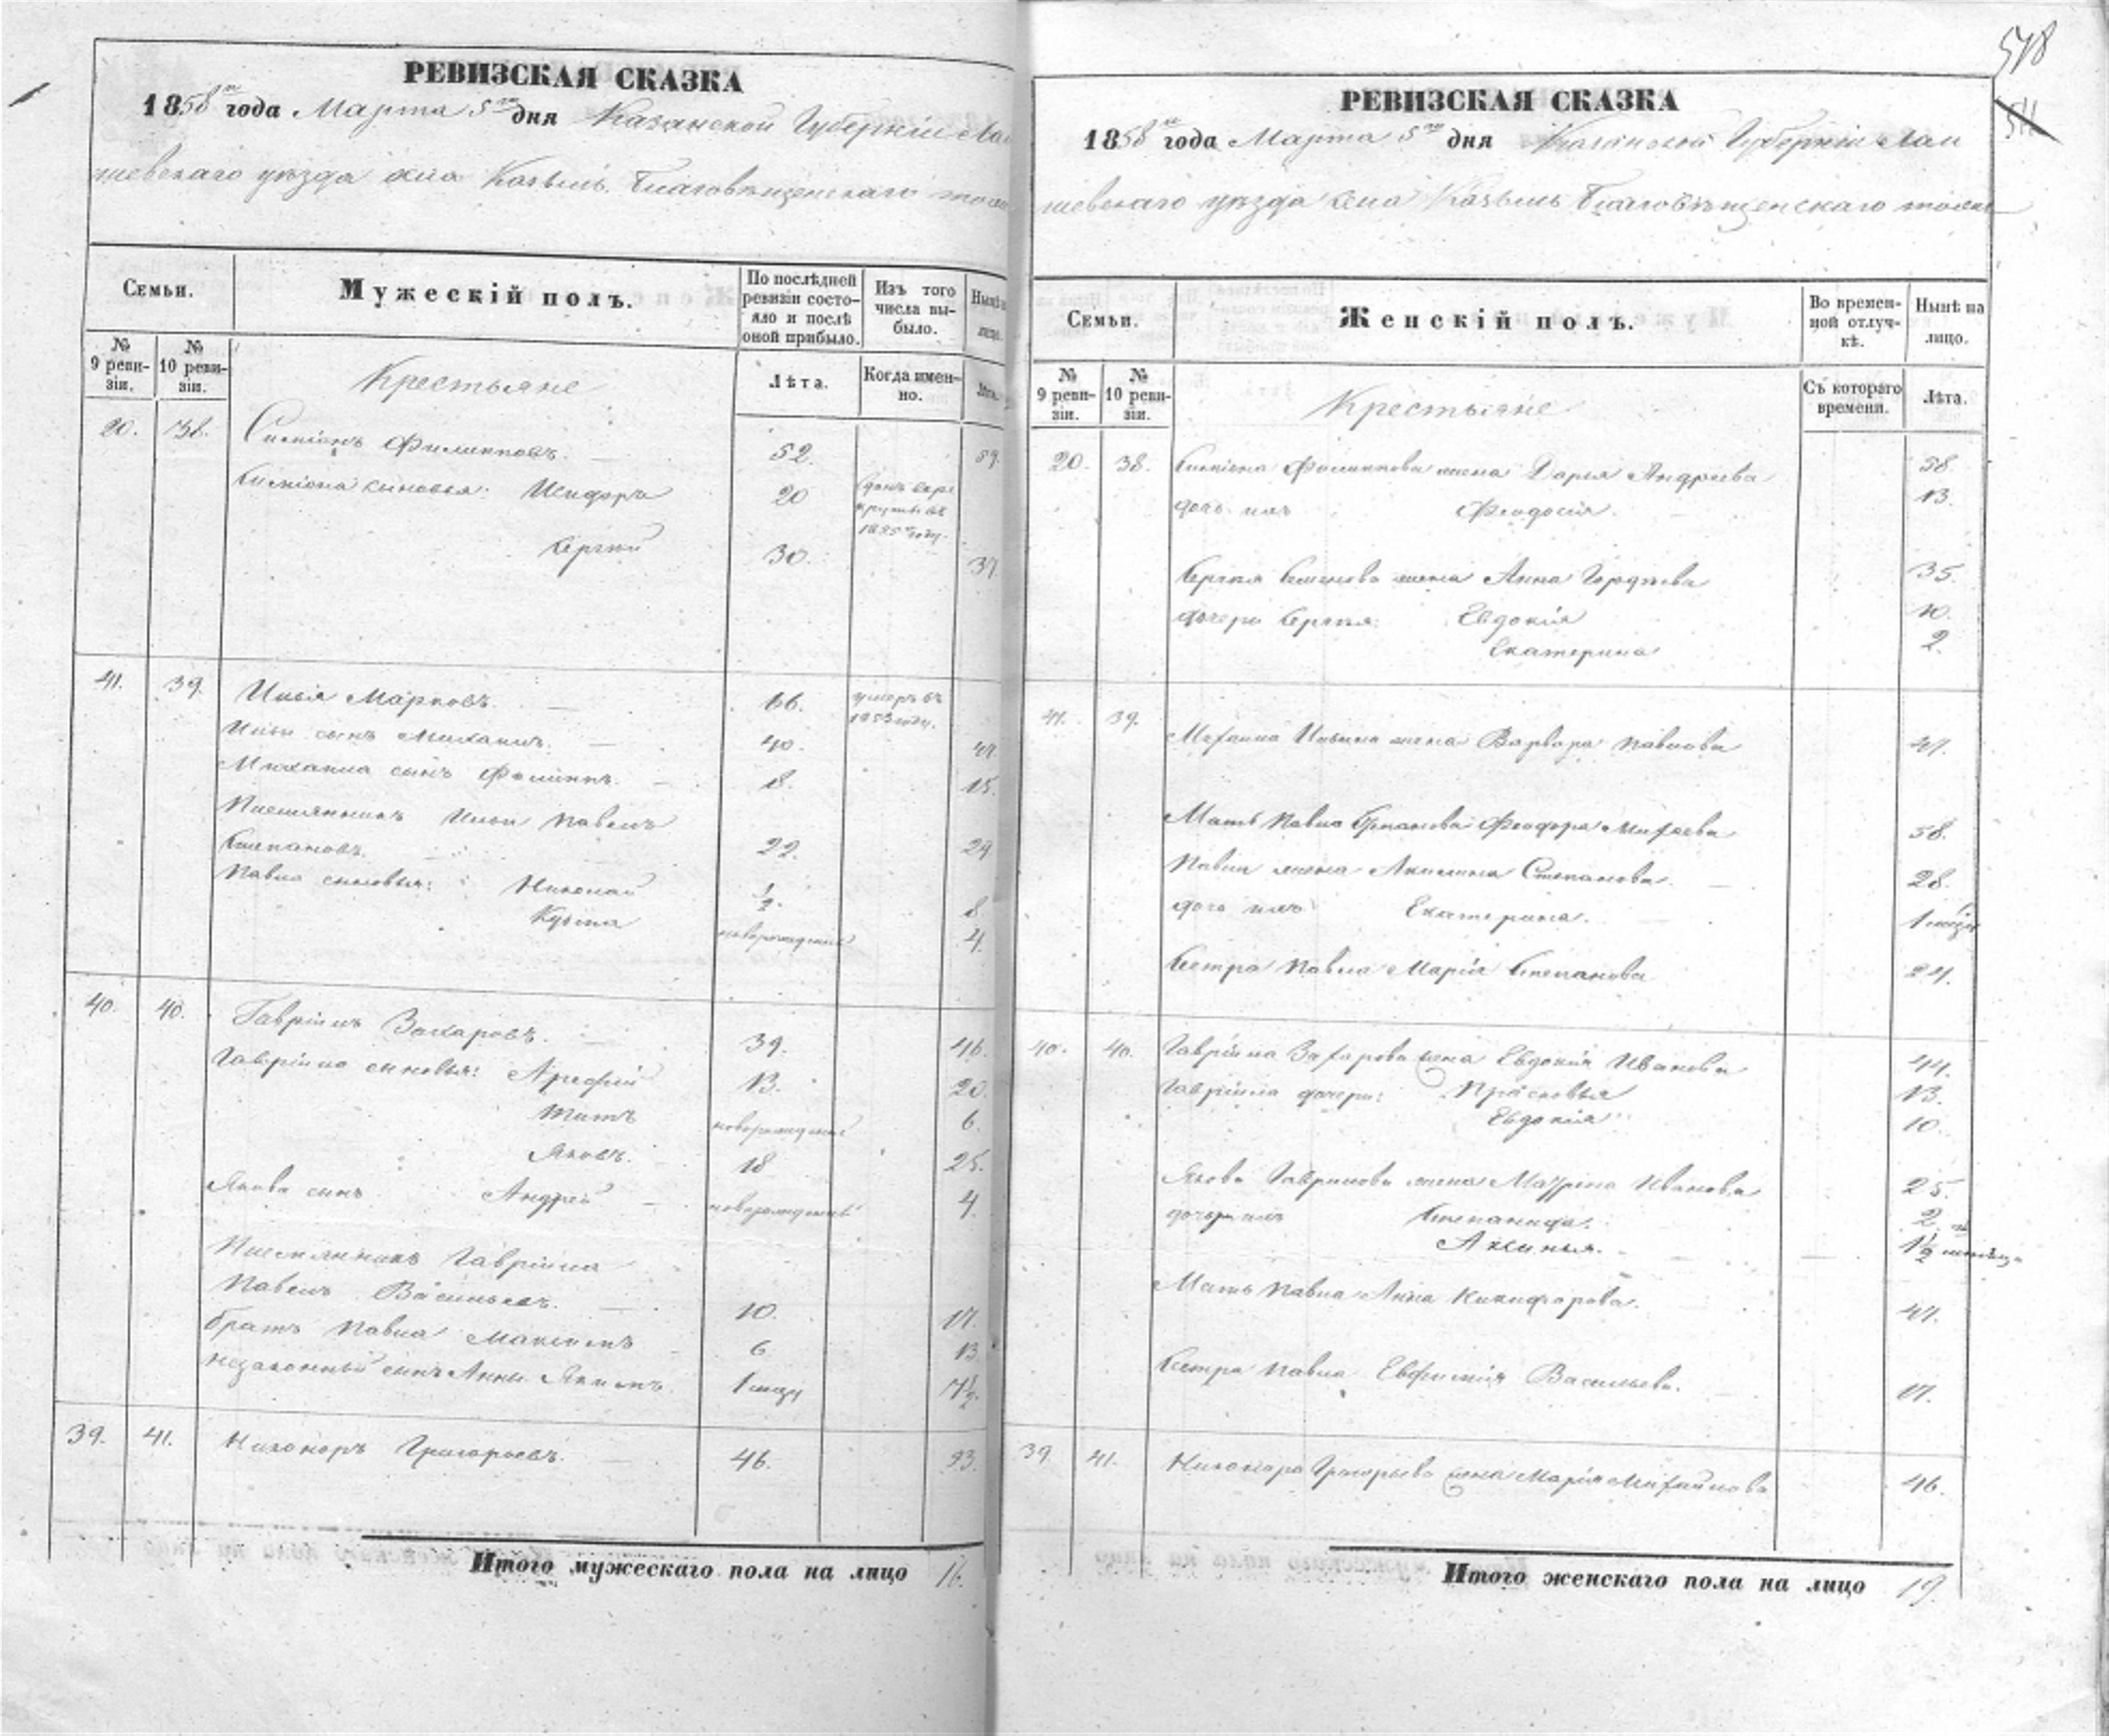 РЕВИЗСКАЯ СКАЗКА
1858го года Марта 5го дня Казанской Губерніи Лаи
шевскаго уѣзда села Казыль Благовѣщенскаго тожъ
Семьи.
Мужескій полъ.
По послѣдней ревизіи состояло и послѣ оной прибыло.
Изъ того числа выбыло.
Нынѣ на лицо.
№ 9 ревизіи.
№ 10 ревизіи.
Крестьяне
Лѣта.
Когда именно.
Лѣта.
20. 38. Симіонъ Филипповъ. 52. 59.
Симіона сыновья: Исидоръ 20 сданъ въ рекруты въ 1855 году.
Сергѣй 30. 37.
41. 39. Илья Марковъ. 66. умеръ въ 1853 году.
Ильи сынъ Михаилъ. 40. 47.
Михаила сынъ Филиппъ. 8. 15.
Племянникъ Ильи Павелъ
Степановъ. 22. 29
Павла сыновья: Николай ½. 8
Кузьма новорожденный 4.
40. 40. Гавріилъ Захаровъ. 39. 46.
Гавріила сыновья: Арефій 13. 20.
Титъ новорожденный 6.
Яковъ. 18 25.
Якова сынъ Андрей новорожденный 4.
Племянникъ Гавріила
Павелъ Васильевъ. 10. 17.
братъ Павла Максимъ 6 13
незаконный сынъ Анны Якимъ. 1 мѣсяц 7½.
39. 41. Никоноръ Григорьевъ. 46. 53.
Итого мужескаго пола на лицо 16.
518
511
РЕВИЗСКАЯ СКАЗКА
1858го года Марта 5го дня Казанской Губерніи Лаи
шевскаго уѣзда села Казыль Благовѣщенскаго тожъ
Семьи.
Женскій полъ.
Во временной отлучкѣ.
Нынѣ на лицо.
№ 9 ревизіи.
№ 10 ревизіи.
Крестьяне
Съ котораго времени.
Лѣта.
20. 38. Симіона Филиппова жена Дарья Андреева 58.
дочь ихъ Феодосія. 13.
Сергѣя Семенова жена Анна Гордѣева 35.
дочери Сергѣя: Евдокія 10.
Екатерина 2.
41. 39. Михаила Ильина жена Варвара Павлова 47.
Мать Павла Степанова Феодора Михеева 58.
Павла жена Акилина Степанова. 28.
дочь ихъ Екатерина. 1 мѣся
Сестра Павла Марія Степанова 24.
40. 40. Гавріила Захарова жена Евдокія Иванова 44.
Гавріила дочери: Прасковья 13.
Евдокія 10.
Якова Гаврилова жена Маѵрина Иванова 25.
дочери ихъ Степанида. 2
Аксинья. 1½ мѣсяца
Мать Павла Анна Никифорова. 47.
Сестра Павла Евфимія Васильева. 17.
39. 41. Никонора Григорьева жена Марія Михайлова 46.
Итого женскаго пола на лицо 19.